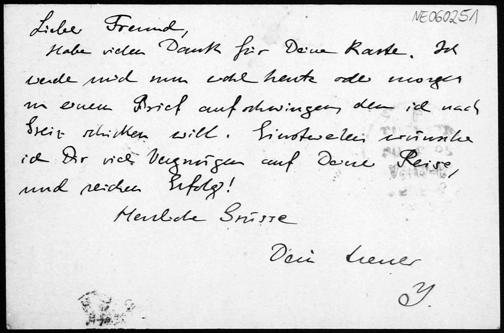 NE060251
Lieber Freund,
Habe vielen Dank für Deine Karte. Ich
werde mich nun wohl heute oder morgen
zu einem Brief aufschwingen, den ich nach
Greiz schicken will. Einstweilen wünsche
ich Dir viel Vergnügen auf Deine Reise,
und reichen Erfolg!
Herzliche Grüsse
Dein treuer
Y.